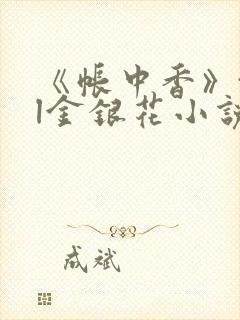 《帐中香》
|金银花小说
成斌